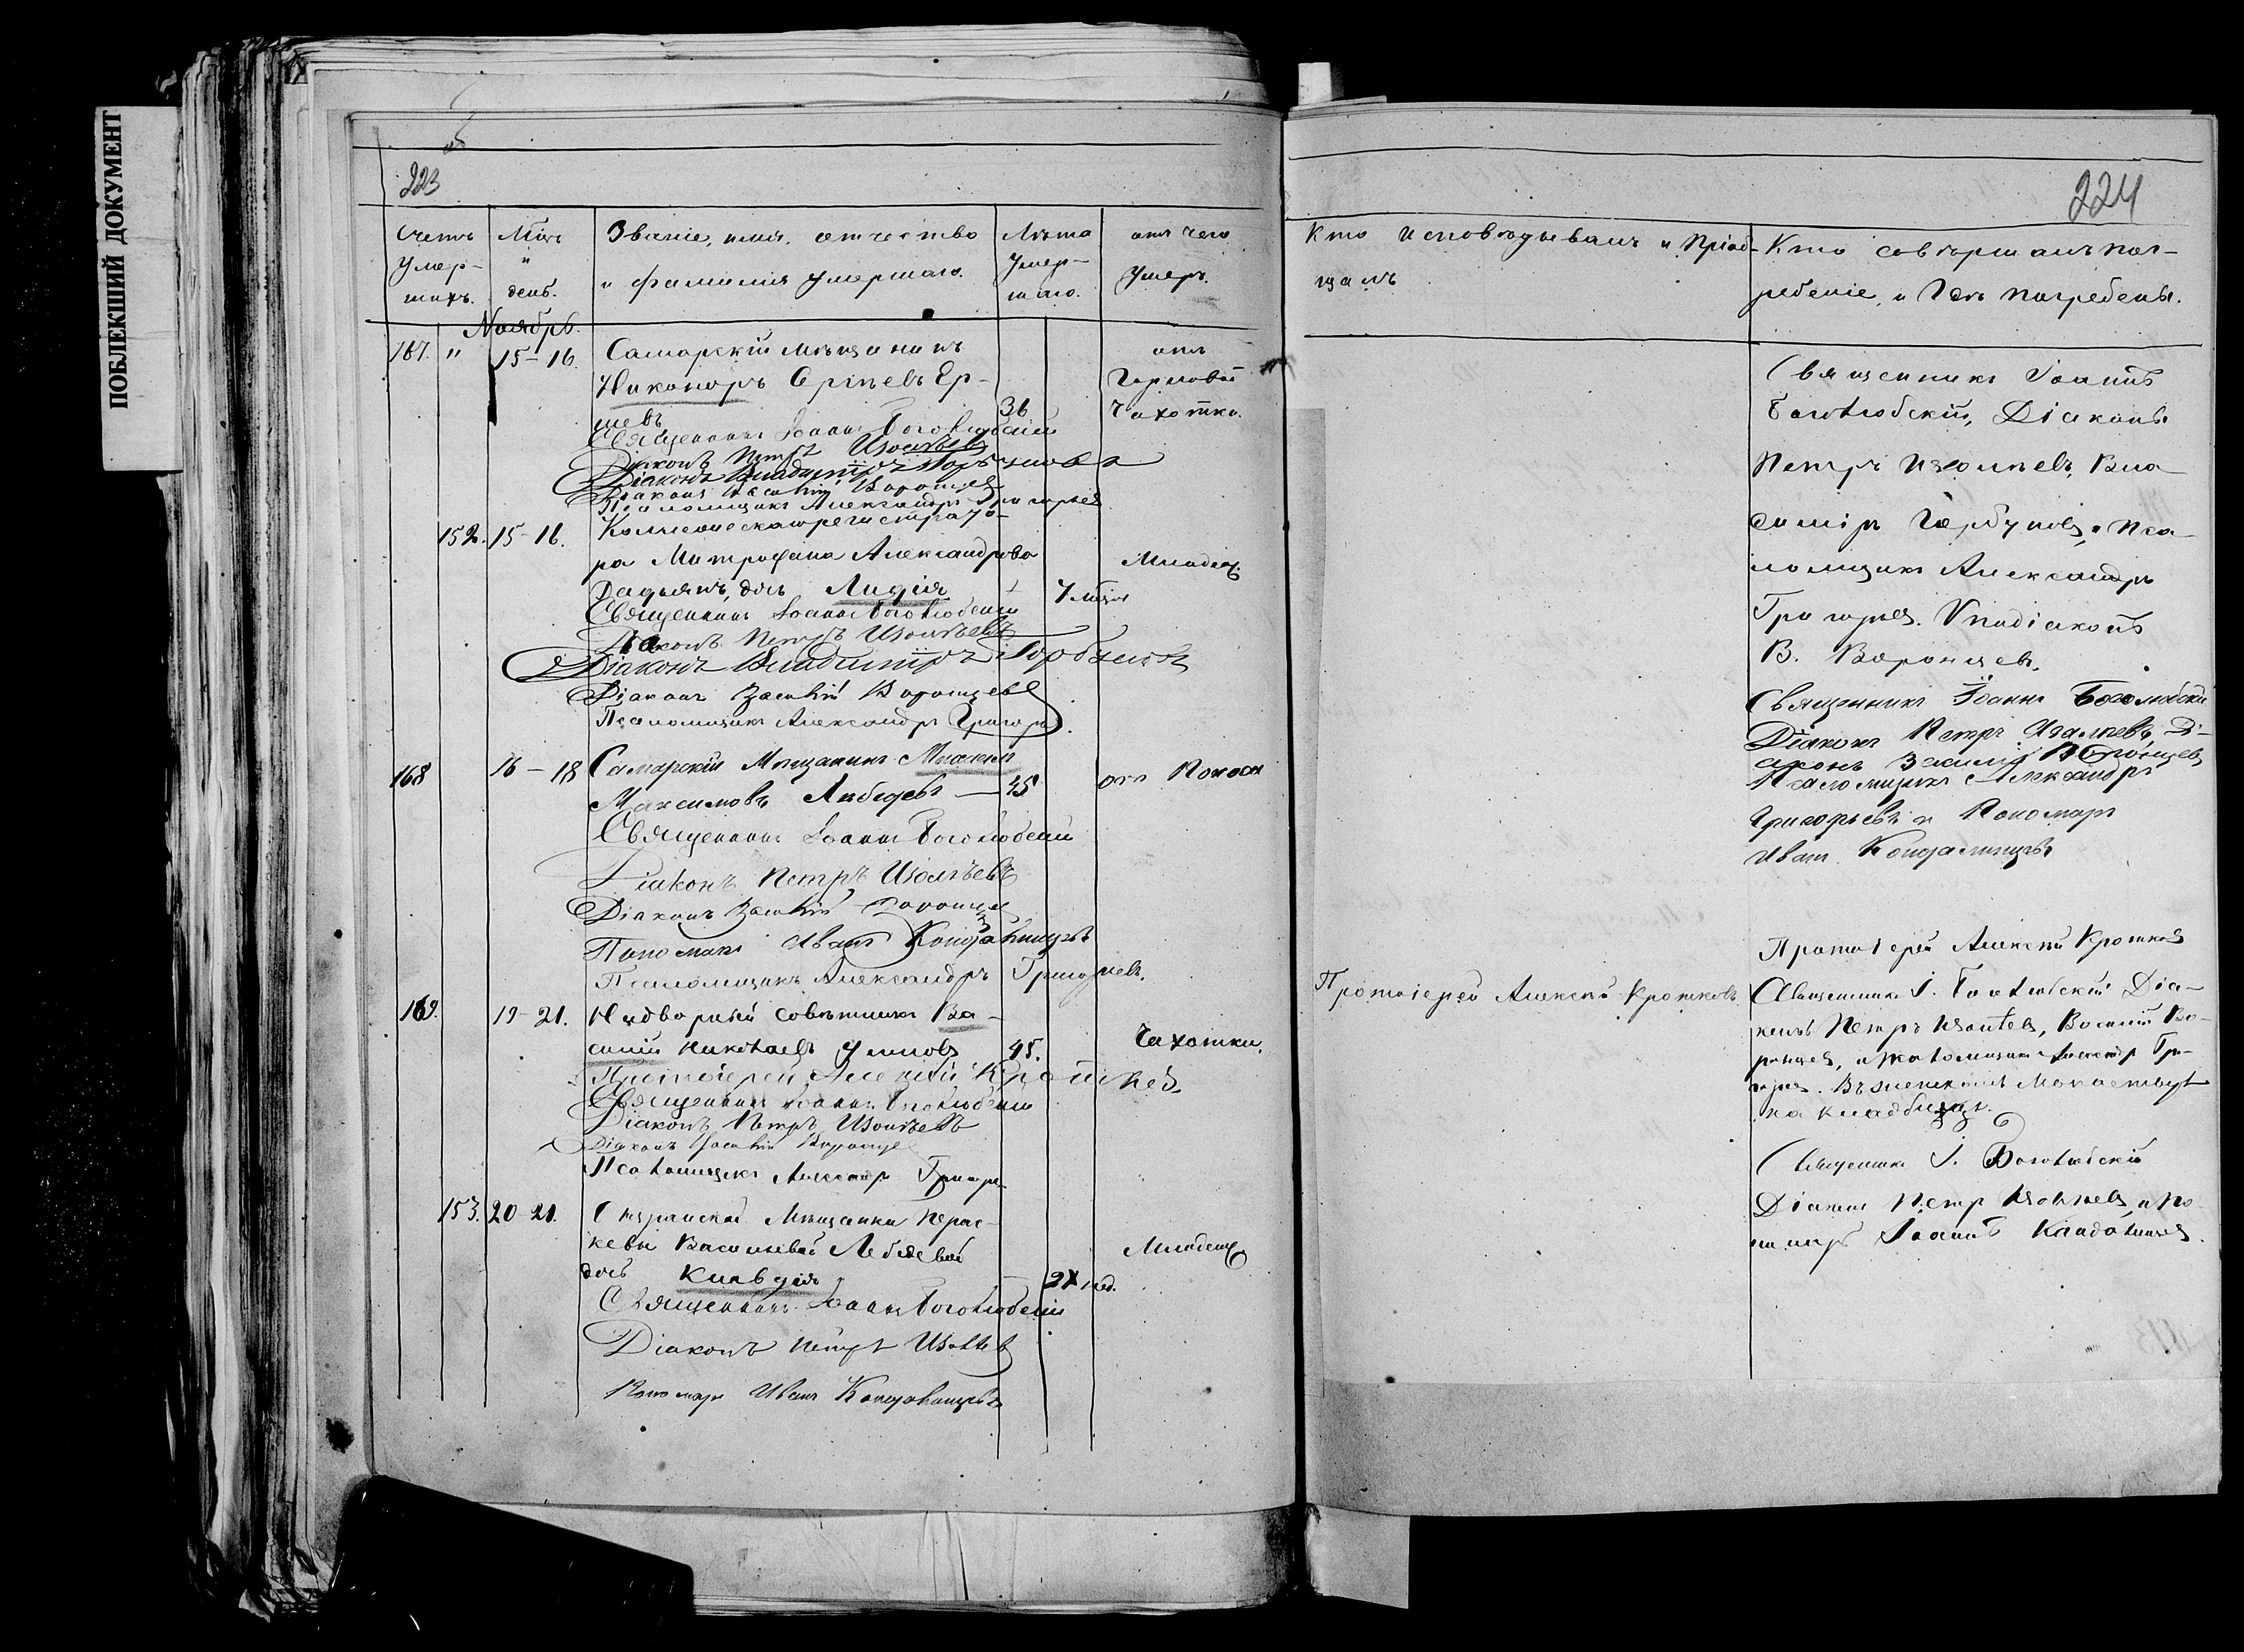 ПОБЛЕКШИЙ ДОКУМЕНТ
об
223
Счетъ умер-шихъ.
Мѣсъ и день.
Званіе, имя, отчество и фамилія умершаго.
Лѣта умер-шаго.
отъ чего умеръ.
Ноябрь.
167. " 15-16. Самарскій мѣщанинъ отъ
Никаноръ Ер- Горловой
шевъ 36 Чахотки.
Священникъ Іоаннъ Боголюбскій
Діаконъ Петръ Изолтѣевъ
Діаконъ Владиміръ Горбуновъ
Діаконъ Василій Воронцев
Псаломщикъ Александръ Григорьев
152. 15-16. Коллежскаго регистрато-
ра Митрофана Александрова Младен.
дочь Лидія 7 мѣся
Священникъ Іоаннъ Боголюбскій
Діаконъ Петръ
Діаконъ Владиміръ Горбунов
Діаконъ Василій Воронцевъ
Псаломщикъ Александръ Григорь
168 16-18 Самарскій Мѣщанинъ
Максимовъ Лебедевъ — 45 отъ Поноса
Священникъ Іоаннъ Боголюбскій
Діаконъ Петръ
Діаконъ Василій Воронцев
Пономарь Иванъ
Псаломщикъ Александръ Григорьевъ.
169. 19-21. Надворный совѣтникъ Ва-
силій Николаевъ Умновъ 45. Чахотки.
Протоіерей Алексій Кротковъ
Священникъ Іоаннъ Боголюбскій
Діаконъ Петръ
Діаконъ Василій Воронце
Псаломщикъ Александръ Григорь
153. 20-21. Сызранской Мѣщанки Перас-
кевы Васильевой Лебедевой Младенц
дочь Клавдія 2 нед.
Священникъ Іоаннъ Боголюбскій
Діаконъ Петръ
Пономарь Иванъ
224
Кто исповѣдывалъ и пріоб-
щалъ
Кто совершалъ пог-
ребеніе, и гдѣ погребены.
Священникъ Іоаннъ
Боголюбскій, Діаконы
Петръ Вла-
диміръ Горбуновъ, и Пса-
ломщикъ Александръ
Григорьев. Діаконъ
В. Воронцевъ.
Священникъ Іоаннъ Боголюбскій
Діаконъ Петръ Ді-
аконъ Василій Воронцев
Псаломщикъ Александръ
Григорьевъ и Пономарь
Иванъ
Протоіерей Алексѣй Кротков
Протоіерей Алексѣй Кротковъ
Священникъ І. Боголюбскій Діа-
конъ Петръ Василій Во-
ронцев, и псаломщикъ Александр Гри-
горь. Въ женскомъ Монастырѣ
на кладбищѣ.
Священник І. Боголюбскій
Діакон Петр и По-
номарь Іоаннъ